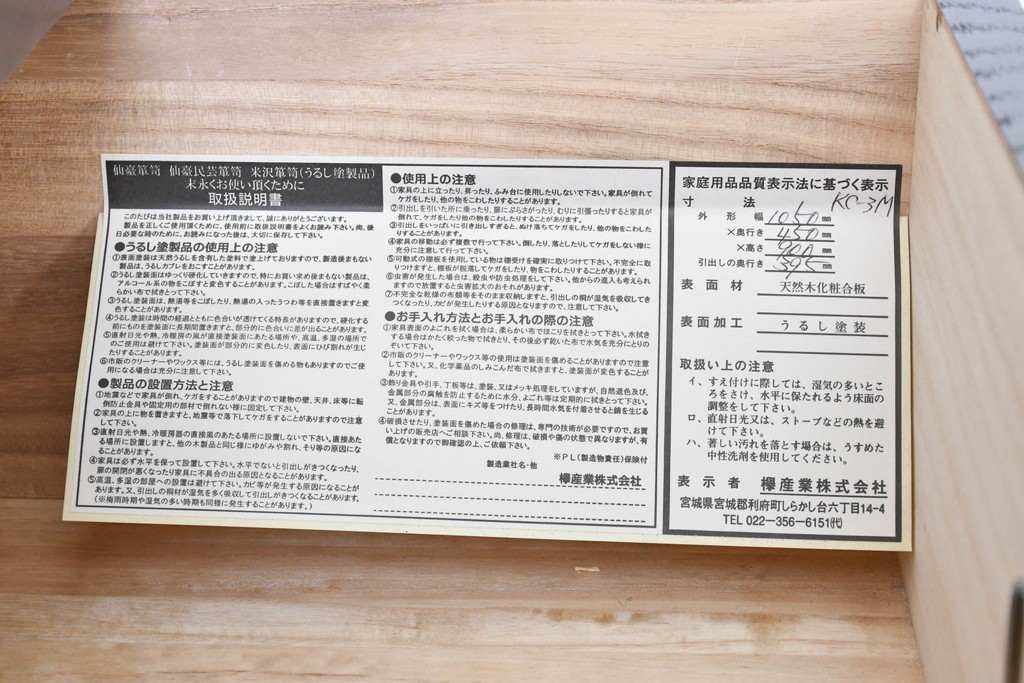 仙臺箪笥 仙臺民芸箪笥 米沢箪笥(うるし塗製品)
末永くお使い頂くために
取扱説明書
このたびは当社製品をお買い上げ頂きまして、誠にありがとうございます。
製品を正しくご使用頂くために、使用前に取扱説明書をよくお読み下さい。尚、後
日必要な時のために、お読みになった後は、大切に保存して下さい。
●うるし塗製品の使用上の注意
①表面塗装は天然うるしを含有した塗料で塗上げておりますので、製造後まもない
製品は、うるしカブレをおこすことがあります。
②うるし塗装面はゆっくり硬化していきますので、特にお買い求め後まもない製品は、
アルコール系の物をこぼすと変色することがあります。こぼした場合はすばやく柔
らかい布で拭きとって下さい。
③うるし塗装面は、熱湯等をこぼしたり、熱湯の入ったうつわ等を直接置きますと変
色することがあります。
④うるし塗装は時間の経過とともに色合いが透けてくる特長がありますので、硬化する
前にものを塗装面に長期間置きますと、部分的に色合いに差が出ることがあります。
⑤直射日光や熱、冷暖房の風が直接塗装面にあたる場所や、高温、多湿の場所で
のご使用は避けて下さい。塗装面が部分的に変色したり、表面にひび割れが生じ
たりすることがあります。
⑥市販のクリーナーやワックス等には、うるし塗装面を傷める物もありますのでご使
用になる場合は充分に注意して下さい。
●製品の設置方法と注意
①地震などで家具が倒れ、ケガをすることがありますので建物の壁、天井、床等に転
倒防止金具や固定用の部材で倒れない様に固定して下さい。
②家具の上に物を置きますと、地震等で落下してケガをすることがありますので注意
して下さい。
③直射日光や熱、冷暖房器の直接風のあたる場所に設置しないで下さい。直接あた
る場所に設置しますと、他の木製品と同様にゆがみや割れ、そり等の原因になる
ことがあります。
④家具は必ず水平を保って設置して下さい。水平でないと引出しがきつくなったり、
扉の開閉が悪くなったり家具に不具合の出る原因となることがあります。
⑤高温、多湿の部屋への設置は避けて下さい。カビ等が発生する原因になることが
あります。又、引出しの桐材が湿気を多く吸収して引出しがきつくなることがあります。
(※梅雨時期や湿気の多い時期も同様に発生することがあります。)
●使用上の注意
①家具の上に立ったり、昇ったり、ふみ台に使用したりしないで下さい。家具が倒れて
ケガをしたり、他の物をこわしたりすることがあります。
②引出しを引いた所に乗ったり、扉にぶらさがったり、むりに引張ったりすると家具が
倒れて、ケガをしたり他の物をこわしたりすることがあります。
③引出しをいっぱいに引き出しすぎると、ぬけ落ちてケガをしたり、他の物をこわした
りすることがあります。
④家具の移動は必ず複数で行って下さい。倒したり、落としたりしてケガをしない様に
充分に注意して行って下さい。
⑤可動式の棚板を使用している物は棚受けを確実に取りつけて下さい。不完全に取
りつけますと、棚板が脱落してケガをしたり、物をこわしたりすることがあります。
⑥虫害が発生した場合は、殺虫や防虫処理をして下さい。他からの進入も考えられ
ますので放置すると虫害拡大のおそれがあります。
⑦不完全な乾燥の衣類等をそのまま収納しますと、引出しの桐が湿気を吸収してき
つくなったり、カビが発生したりする原因となりますので、注意して下さい。
●お手入れ方法とお手入れの際の注意
①家具表面のよごれを拭く場合は、柔らかい布でほこりを拭きとって下さい。水拭き
する場合はかたく絞った物で拭きとり、その後必ず乾いた布で水気を充分にとりの
ぞいて下さい。
②市販のクリーナーやワックス等の使用は塗装面を傷めることがありますので注意
して下さい。又、化学薬品のしみこんだ布で拭きますと、塗装面が変色することが
あります。
③飾り金具や引手、丁板等は、塗装、又はメッキ処理をしていますが、自然退色及び、
金属部分の腐触を防止するために水分、よごれ等は定期的に拭きとって下さい。
又、金属部分は、表面にキズ等をつけたり、長時間水気を付着させると錆を生じる
ことがあります。
④破損させたり、塗装面を傷めた場合の修理は、専門の技術が必要ですので、お買
い上げの販売店へご相談下さい。尚、修理は、破損や傷の状態で異なりますが、有
償となりますので御確認の上、ご依頼下さい。
※PL(製造物責任)保険付
製造業社名・他
欅産業株式会社
家庭用品品質表示法に基づく表示
寸法 KC-3M
外形幅 1050 mm
×奥行き 450 mm
×高さ 900 mm
引出しの奥行き 395 mm
表面材 天然木化粧合板
表面加工 うるし塗装
取扱い上の注意
イ、すえ付けに際しては、湿気の多いとこ
ろをさけ、水平に保たれるよう床面の
調整をして下さい。
ロ、直射日光又は、ストーブなどの熱を避
けて下さい。
ハ、著しい汚れを落とす場合は、うすめた
中性洗剤を使用してください。
表示者 欅産業株式会社
宮城県宮城郡利府町しらかし台六丁目14-4
TEL 022-356-6151㈹